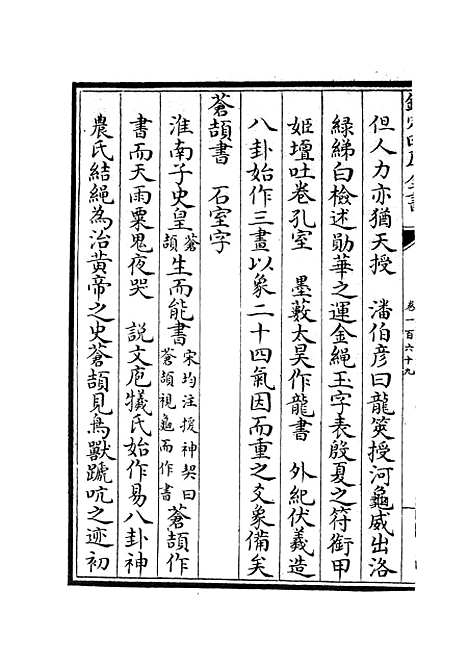 欽定四庫全書
卷一百六十九
但人力亦猶天授　潘伯彦曰龍筴授河龜威出洛
綠綈白檢述勛華之運金繩玉字表殷夏之符銜甲
姬壇吐卷孔室　墨藪太昊作龍書　外紀伏羲造
八卦始作三畫以象二十四氣因而重之爻象備矣
蒼頡書　石室字
淮南子史皇蒼頡生而能書宋均注援神契曰蒼頡視龜而作書蒼頡作
書而天雨粟鬼夜哭　說文庖犧氏始作易八卦神
農氏結繩為治黄帝之史蒼頡見鳥獸蹏迒之迹初